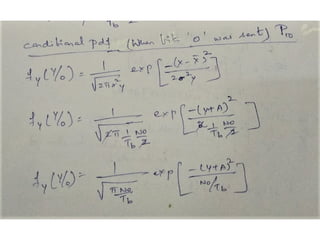 conditional pdf (When bit '0' was sent) P10
fy(Y/0) = 1/√(2πσ²y) exp[-(x-x̄)²/2σ²y]
fy(Y/0) = 1/√(2π 1/Tb N0/2) exp[-(y+A)²/(2 1/Tb N0/2)]
fy(Y/0) = 1/√(πN0/Tb) exp[-(y+A)²/(N0/Tb)]